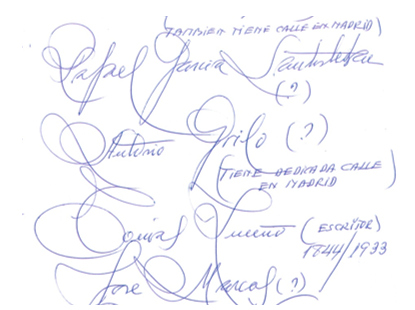 (TAMBIEN TIENE CALLE EN MADRID)
Rafael Garcia Santisteban
(?)
Antonio Grilo (?)
(TIENE DEDICADA CALLE
EN MADRID)
Tomas Luceño (ESCRITOR)
1844/1933
Jose Marcos (?)